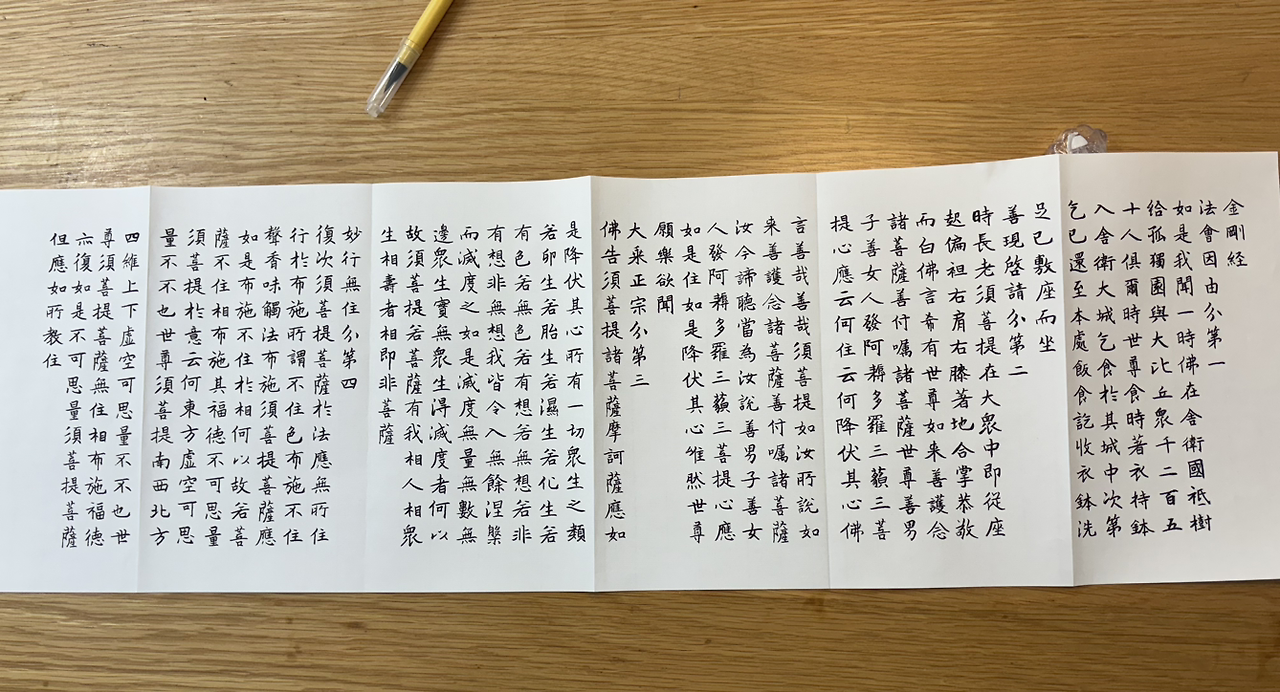 金剛経
法會因由分第一
如是我聞一時佛在舍衛國祇樹
给孤獨園與大比丘衆千二百五
十人俱爾時世尊食時著衣持鉢
入舍衛大城乞食於其城中次第
乞已還至本處飯食訖收衣鉢洗
足已敷座而坐
善現啓請分第二
時長老須菩提在大衆中即從座
起偏袒右肩右膝著地合掌恭敬
而白佛言希有世尊如来善護念
諸菩薩善付嘱諸菩薩世尊善男
子善女人發阿耨多羅三藐三菩
提心應云何住云何降伏其心佛
言善哉善哉須菩提如汝所說如
来善護念諸菩薩善付嘱諸菩薩
汝今諦聽當為汝說善男子善女
人發阿耨多羅三藐三菩提心應
如是住如是降伏其心唯然世尊
願樂欲聞
大乘正宗分第三
佛告須菩提諸菩薩摩訶薩應如
是降伏其心所有一切衆生之類
若卵生若胎生若濕生若化生若
有色若無色若有想若無想若非
有想非無想我皆令入無餘涅槃
而滅度之如是滅度無量無數無
邊衆生實無衆生得滅度者何以
故須菩提若菩薩有我相人相衆
生相壽者相即非菩薩
妙行無住分第四
復次須菩提菩薩於法應無所住
行於布施所謂不住色布施不住
聲香味觸法布施須菩提菩薩應
如是布施不住於相何以故若菩
薩不住相布施其福德不可思量
須菩提於意云何東方虛空可思
量不不也世尊須菩提南西北方
四維上下虛空可思量不不也世
尊須菩提菩薩無住相布施福德
亦復如是不可思量須菩提菩薩
但應如所教住